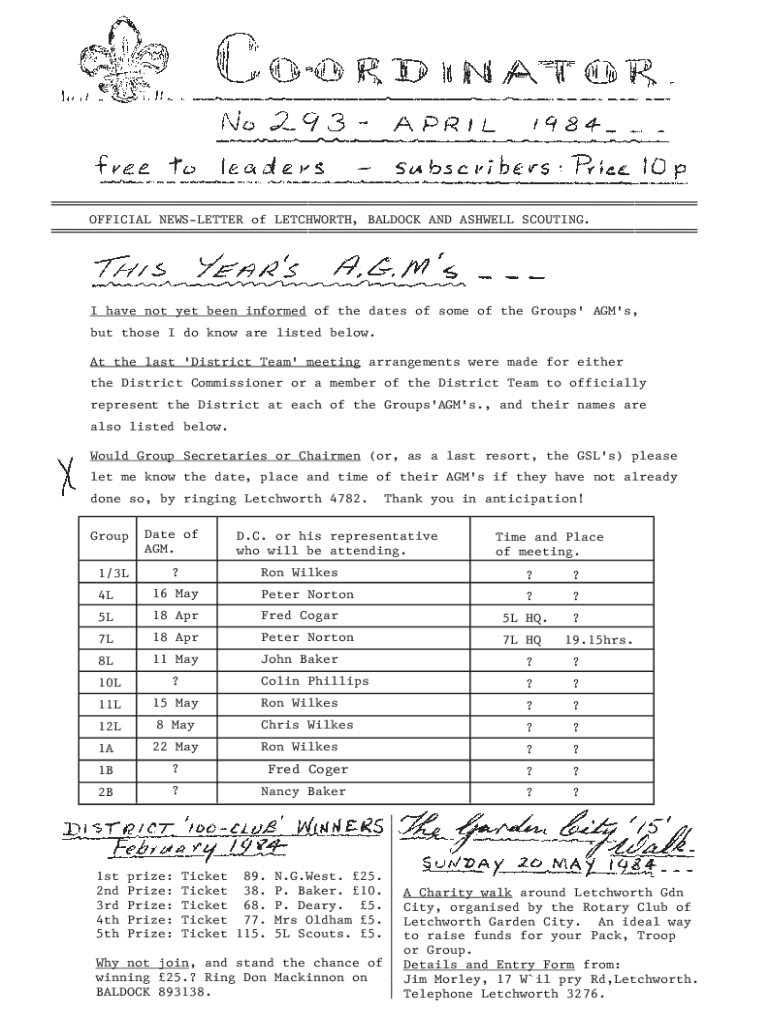 CO-ORDINATOR.
No 293 - APRIL 1984 - - -
free to leaders - subscribers: Price 10p
OFFICIAL NEWS-LETTER of LETCHWORTH, BALDOCK AND ASHWELL SCOUTING.
THIS YEAR'S A.G.M's - - -
I have not yet been informed of the dates of some of the Groups' AGM's,
but those I do know are listed below.
At the last 'District Team' meeting arrangements were made for either
the District Commissioner or a member of the District Team to officially
represent the District at each of the Groups'AGM's., and their names are
also listed below.
Would Group Secretaries or Chairmen (or, as a last resort, the GSL's) please
X let me know the date, place and time of their AGM's if they have not already
done so, by ringing Letchworth 4782. Thank you in anticipation!
Group Date of D.C. or his representative Time and Place
AGM. who will be attending. of meeting.
1/3L ? Ron Wilkes ? ?
4L 16 May Peter Norton ? ?
5L 18 Apr Fred Cogar 5L HQ. ?
7L 18 Apr Peter Norton 7L HQ 19.15hrs.
8L 11 May John Baker ? ?
10L ? Colin Phillips ? ?
11L 15 May Ron Wilkes ? ?
12L 8 May Chris Wilkes ? ?
1A 22 May Ron Wilkes ? ?
1B ? Fred Coger ? ?
2B ? Nancy Baker ? ?
DISTRICT '100-CLUB' WINNERS
February 1984
1st prize: Ticket 89. N.G.West. £25.
2nd Prize: Ticket 38. P. Baker. £10.
3rd Prize: Ticket 68. P. Deary. £5.
4th Prize: Ticket 77. Mrs Oldham £5.
5th Prize: Ticket 115. 5L Scouts. £5.
Why not join, and stand the chance of
winning £25.? Ring Don Mackinnon on
BALDOCK 893138.
The Garden City '15'
Walk.
SUNDAY 20 MAY 1984 - - -
A Charity walk around Letchworth Gdn
City, organised by the Rotary Club of
Letchworth Garden City. An ideal way
to raise funds for your Pack, Troop
or Group.
Details and Entry Form from:
Jim Morley, 17 W`il pry Rd,Letchworth.
Telephone Letchworth 3276.